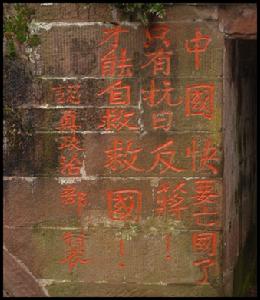 中國快要亡國了
只有抗日反蔣！
才能自救救國！
認真政治部